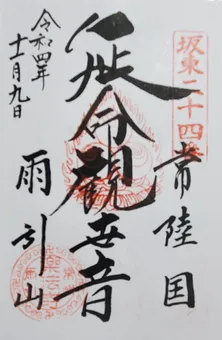 坂東二十四番
常陸国
延命觀世音
雨引山
令和四年
十一月九日